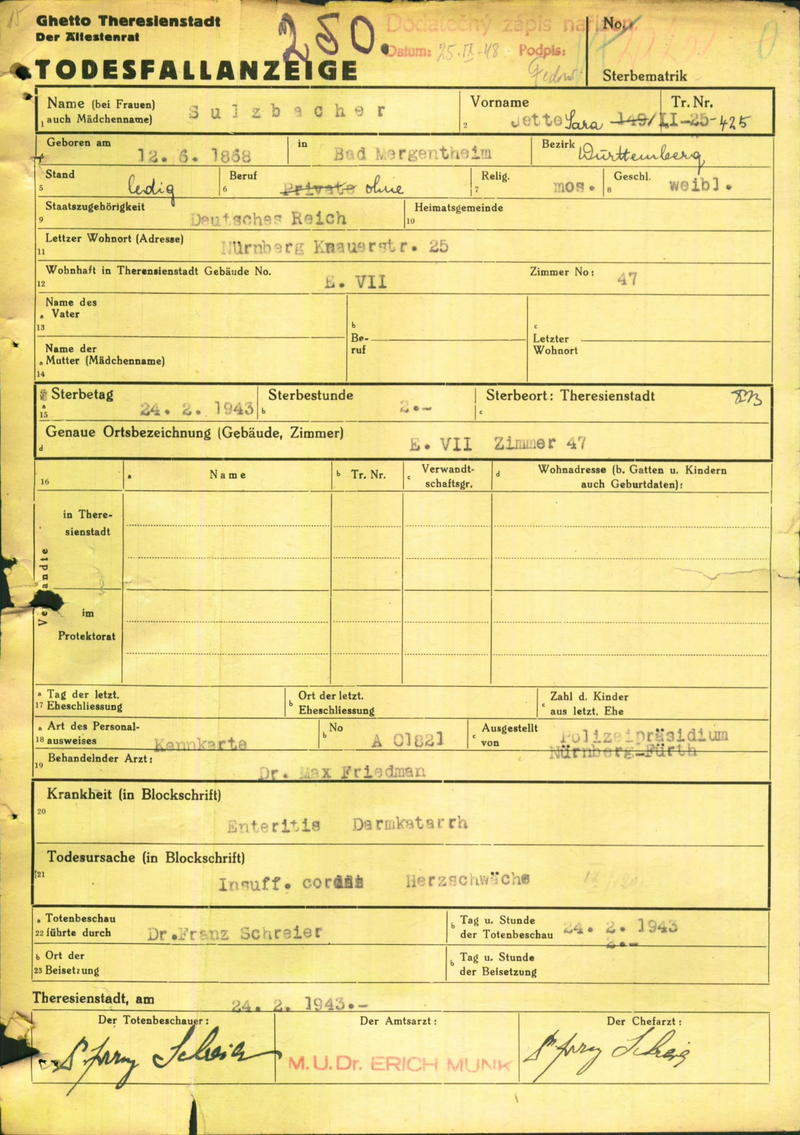 Ghetto Theresienstadt
Der Ältestenrat
250.
Dodatečný zápis nařízen.
Datum: 25.IX.48 Podpis:
No.
TODESFALLANZEIGE
Sterbematrik
Name (bei Frauen) auch Mädchenname) Sulzbacher
Vorname Jette Sara
Tr. Nr. 149/II-25-425
Geboren am 12. 6. 1868 in Bad Mergentheim Bezirk Württemberg
Stand ledig Beruf Private ohne Relig. mos. Geschl. weibl.
Staatszugehörigkeit Deutsches Reich Heimatsgemeinde
Lettzer Wohnort (Adresse) Nürnberg Knauerstr. 25
Wohnhaft in Therensienstadt Gebäude No. E. VII Zimmer No: 47
Name des Vater
Beruf
Letzter Wohnort
Name der Mutter (Mädchenname)
Sterbetag 24. 2. 1943 Sterbestunde 2.- Sterbeort: Theresienstadt
Genaue Ortsbezeichnung (Gebäude, Zimmer) E. VII Zimmer 47
16 a Name b Tr. Nr. c Verwandtschaftsgr. d Wohnadresse (b. Gatten u. Kindern auch Geburtdaten):
in Theresienstadt
im Protektorat
17 a Tag der letzt. Eheschliessung b Ort der letzt. Eheschliessung c Zahl d. Kinder aus letzt. Ehe
18 a Art des Personalausweises Kennkarte b No A 01821 c Ausgestellt von Polizeipräsidium
Nürnberg-Fürth
19 Behandelnder Arzt: Dr. Max Friedman
Krankheit (in Blockschrift)
20
Enteritis Darmkatarrh
Todesursache (in Blockschrift)
21
Insuff. cordis Herzschwäche
22 a Totenbeschau führte durch Dr.Franz Schreier b Tag u. Stunde der Totenbeschau 24. 2. 1943
2.-
23 b Ort der Beisetzung b Tag u. Stunde der Beisetzung
Theresienstadt, am 24. 2. 1943.-
Der Totenbeschauer: Der Amtsarzt: Der Chefarzt:
M.U.Dr. ERICH MUNK